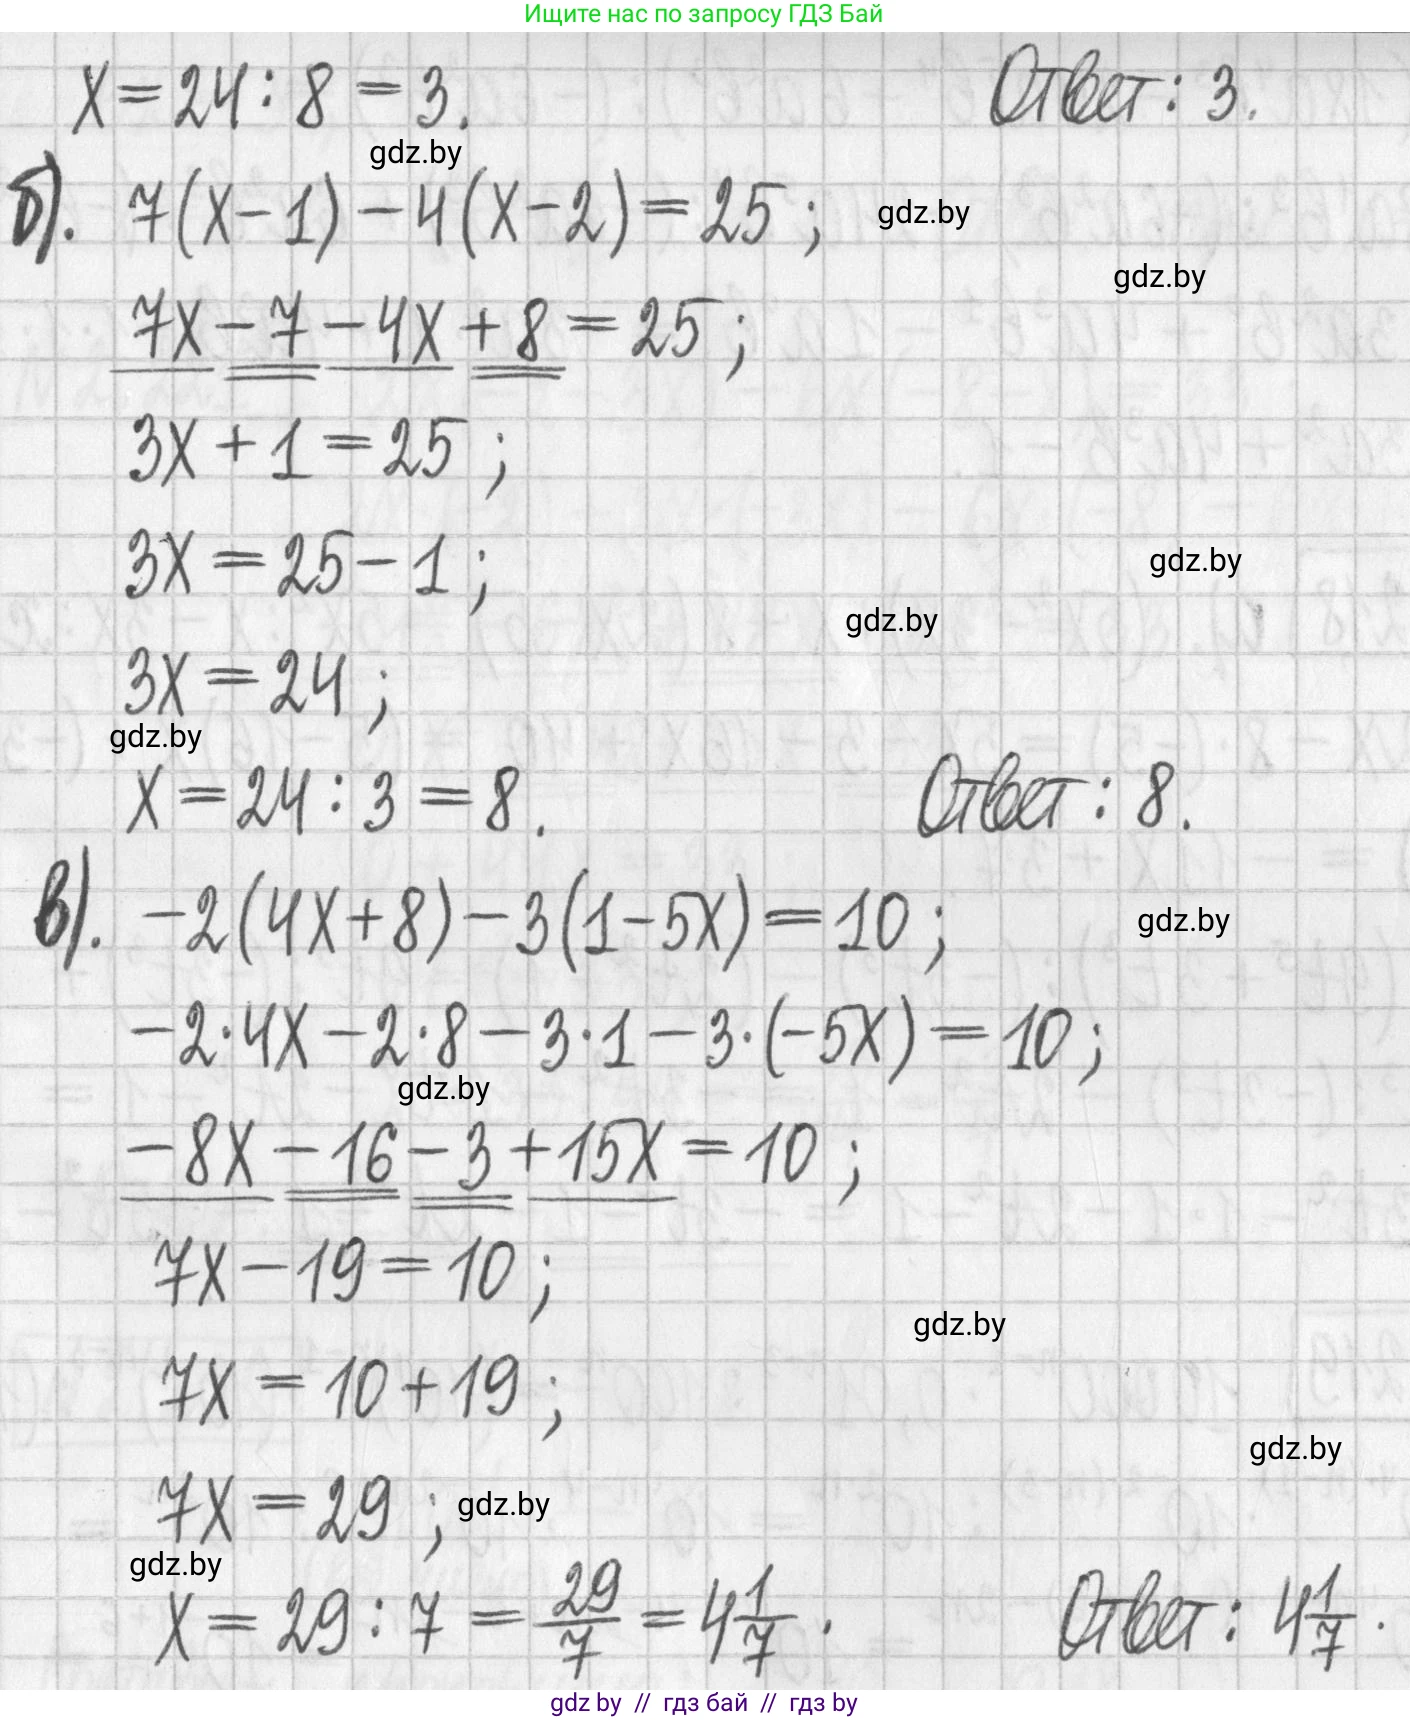 Ищите нас по запросу ГДЗ Бай
x = 24 : 8 = 3. Ответ: 3.
gdz.by
б). 7(x - 1) - 4(x - 2) = 25; gdz.by
gdz.by
7x - 7 - 4x + 8 = 25;
3x + 1 = 25;
3x = 25 - 1; gdz.by
gdz.by
3x = 24;
gdz.by
x = 24 : 3 = 8. Ответ: 8.
в). -2(4x + 8) - 3(1 - 5x) = 10; gdz.by
-2·4x - 2·8 - 3·1 - 3·(-5x) = 10;
gdz.by
-8x - 16 - 3 + 15x = 10;
7x - 19 = 10;
gdz.by
7x = 10 + 19;
gdz.by
7x = 29; gdz.by
gdz.by
x = 29 : 7 = 29/7 = 4 1/7. Ответ: 4 1/7.
gdz by // гдз бай // гдз by